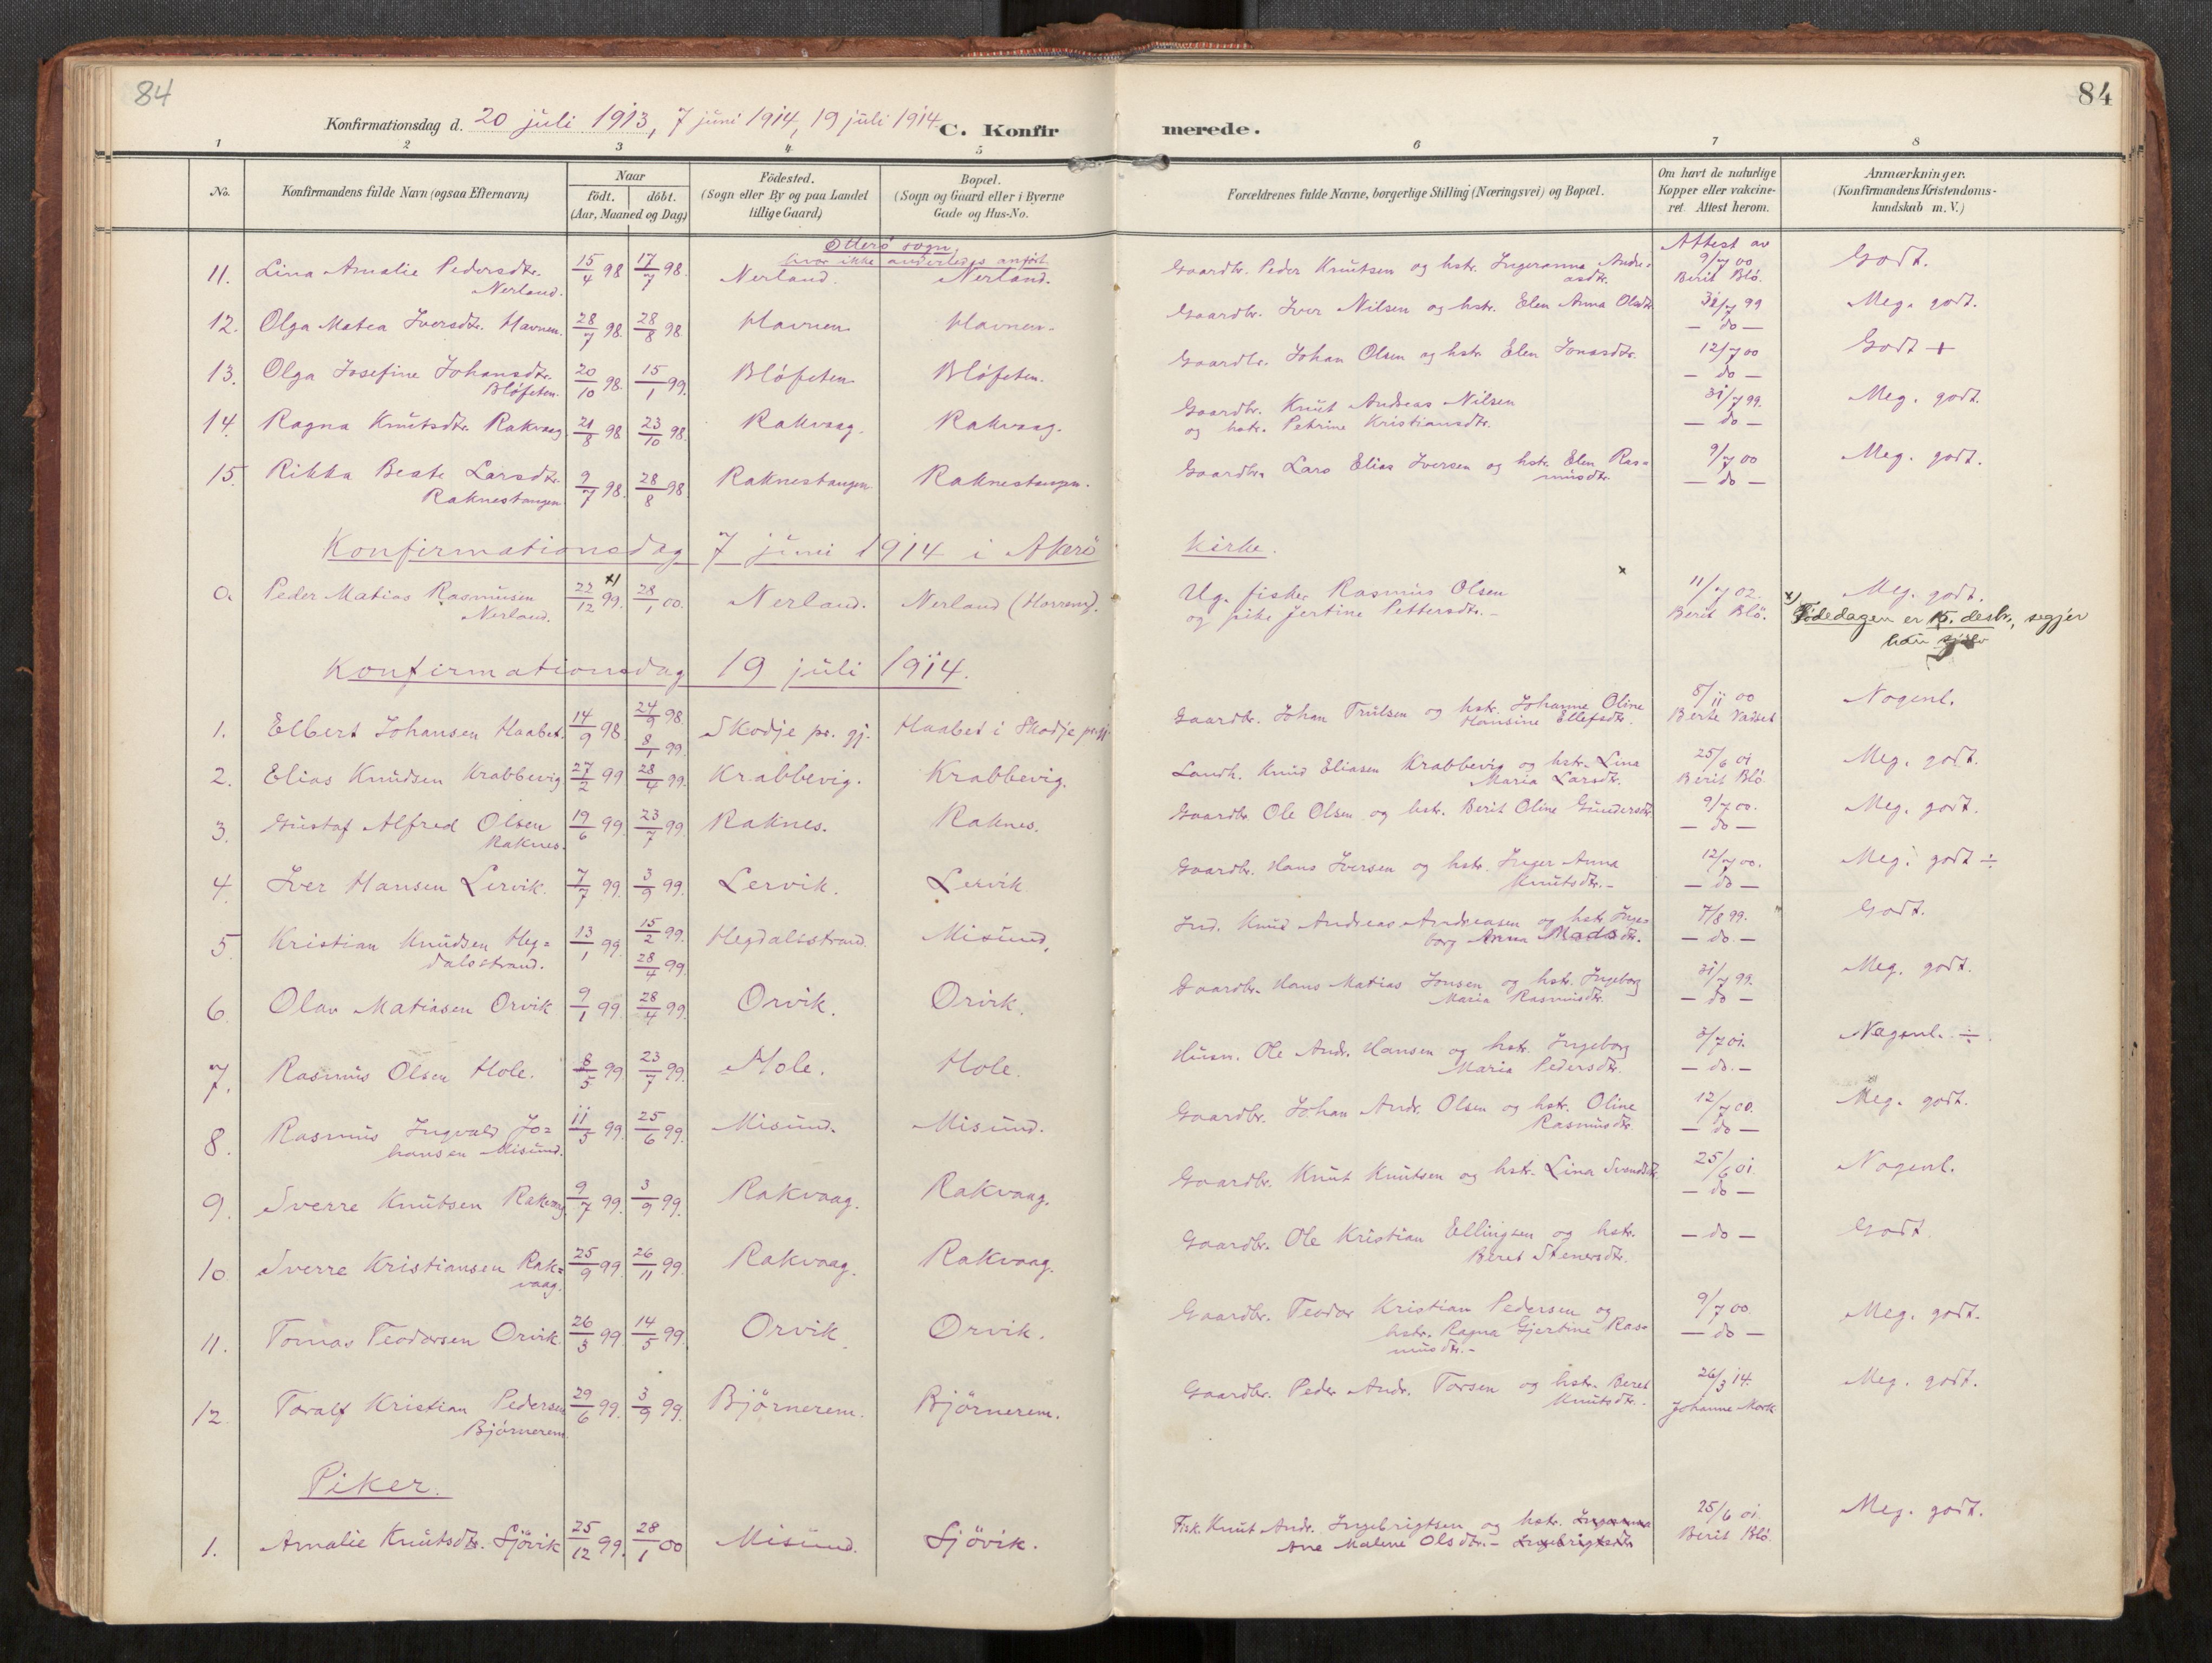 84
84
Konfirmationsdag d. 20 juli 1913, 7 juni 1914, 19 juli 1914
C. Konfirmerede.
1 2 3 4 5 6 7 8
No.
Konfirmandens fulde Navn (ogsaa Efternavn)
Naar
födt. döbt.
(Aar, Maaned og Dag)
Födested.
(Sogn eller By og paa Landet
tillige Gaard)
Bopæl.
(Sogn og Gaard eller i Byerne
Gade og Hus-No.
Forældrenes fulde Navne, borgerlige Stilling (Næringsvei) og Bopæl.
Om havt de naturlige
Kopper eller vakcine-
ret. Attest herom.
Anmærkninger.
(Konfirmandens Kristendoms-
kundskab m. V.)
Otterö sogn,
hvor ikke anderledes anfört.
Attest av
11. Lina Amalie Pedersdtr. 15/4 98 17/7 98. Nerland. Nerland. Gaardbr. Peder Knutsen og hstr. Ingeranna Andre- 9/7 00 Godt.
Nerland. asdtr. Berit Blö.
12. Olga Matea Iversdtr. Havnen. 28/7 98. 28/8 98. Havnen. Havnen. Gaardbr. Iver Nilsen og hstr. Elen Anna Olsdtr. 31/7 99 Meg. godt.
— do —
13. Olga Josefine Johansdtr. 20/10 98. 15/1 99. Blöfeten. Blöfeten. Gaardbr. Johan Olsen og hstr. Elen Jonasdtr. 12/7 00 Godt +
Blöfeten. — do —
14. Ragna Knutsdtr. Rakvaag 21/8 98 23/10 98. Rakvaag. Rakvaag. Gaardbr. Knut Andreas Nilsen 31/7 99. Meg. godt.
og hstr. Petrine Kristiansdtr. — do —
15. Rikka Beate Larsdtr. 9/7 98. 28/8 98 Raknestangen. Raknestangen. Gaardbr. Lars Elias Iversen og hstr. Elen Ras- 9/7 00 Meg. godt.
Raknestangen musdtr. — do —
Konfirmationsdag 7 juni 1914 i Akerö kirke.
a. Peder Matias Rasmusen 22/12 99. x) 28/1 00. Nerland. Nerland (Horrem). Ug. fisker Rasmus Olsen x 11/7 02. Meg. godt.
Nerland. og pike Jertine Pettersdtr. – Berit Blö. x) Födedagen er 15. desbr., segjer
han sjølv
Konfirmationsdag 19 juli 1914.
1. Elbert Johansen Haabet. 14/9 98. 24/9 98. 8/1 99. Skodje pr. gj. Haabet i Skodje pr. gj. Gaardbr. Johan Trulsen og hstr. Johanne Oline 8/11 00 Nogenl.
Hansine Ellefsdtr. Berte Vadset
2. Elias Knudsen Krabbevig 27/2 99 28/4 99. Krabbevig. Krabbevig. Landh. Knud Eliasen Krabbevig og hstr. Lina 25/6 01 Meg. godt.
Maria Larsdtr. Berit Blö
3. Gustaf Alfred Olsen 19/6 99. 23/7 99. Raknes. Raknes. Gaardbr. Ole Olsen og hstr. Berit Oline Gundersdtr. 9/7 00. Meg. godt.
Raknes. — do —
4. Iver Hansen Lervik. 7/7 99. 3/9 99. Lervik. Lervik. Gaardbr. Hans Iversen og hstr. Inger Anna 12/7 00. Meg. godt ÷
Knutsdtr. – — do —
5. Kristian Knudsen Heg- 13/1 99. 15/2 99. 28/4 99. Hegdalsstrand. Misund. Ind. Knud Andreas Andreasen og hstr. Inge- 7/8 99. Godt.
dalsstrand. borg Anna Madsdtr. — do. —
6. Olav Matiasen Orvik 9/1 99. 28/4 99. Orvik. Orvik. Gaardbr. Hans Matias Jonsen og hstr. Ingeborg 31/7 99. Meg. godt.
Maria Rasmusdtr. — do —
7. Rasmus Olsen Hole. 8/5 99 23/7 99. Hole. Hole. Husm. Ole Andr. Hansen og hstr. Ingeborg 3/7 01. Nogenl. ÷
Maria Pedersdtr. — do. —
8. Rasmus Ingvald Jo- 11/5 99. 25/6 99. Misund. Misund. Gaardbr. Johan Andr. Olsen og hstr. Oline 12/7 00. Meg. godt.
hansen Misund. Rasmusdtr. — do —
9. Sverre Knutsen Rakvaag 9/7 99. 3/9 99. Rakvaag. Rakvaag. Gaardbr. Knut Knutsen og hstr. Lina Svendsdtr. 25/6 01. Nogenl.
— do —
10 Sverre Kristiansen Rak- 25/9 99. 26/11 99. Rakvaag. Rakvaag. Gaardbr. Ole Kristian Ellingsen og hstr. — do — Godt.
vaag. Beret Stenersdtr.
11. Tomas Teodorsen Orvik. 26/3 99 14/5 99. Orvik. Orvik. Gaardbr. Teodor Kristian Pedersen og 9/7 00 Meg. godt.
hstr. Ragna Gjertine Ras- — do —
musdtr. –
12. Toralf Kristian Pedersen 29/6 99. 3/9 99. Björnerem. Björnerem. Gaardbr. Peder Andr. Torsen og hstr. Beret 26/3 14. Meg. godt.
Björnerem. Knutsdtr. Johanne Mork
Piker.
1. Amalie Knutsdtr. Sjövik 25/12 99. 28/1 00 Misund. Sjövik. Fisk. Knut Andr. Ingebrigtsen og hstr. Ingeranna 25/6 01. Meg. godt.
Ane Malene Olsdtr. – Ingebrigtsdtr. Berit Blö.